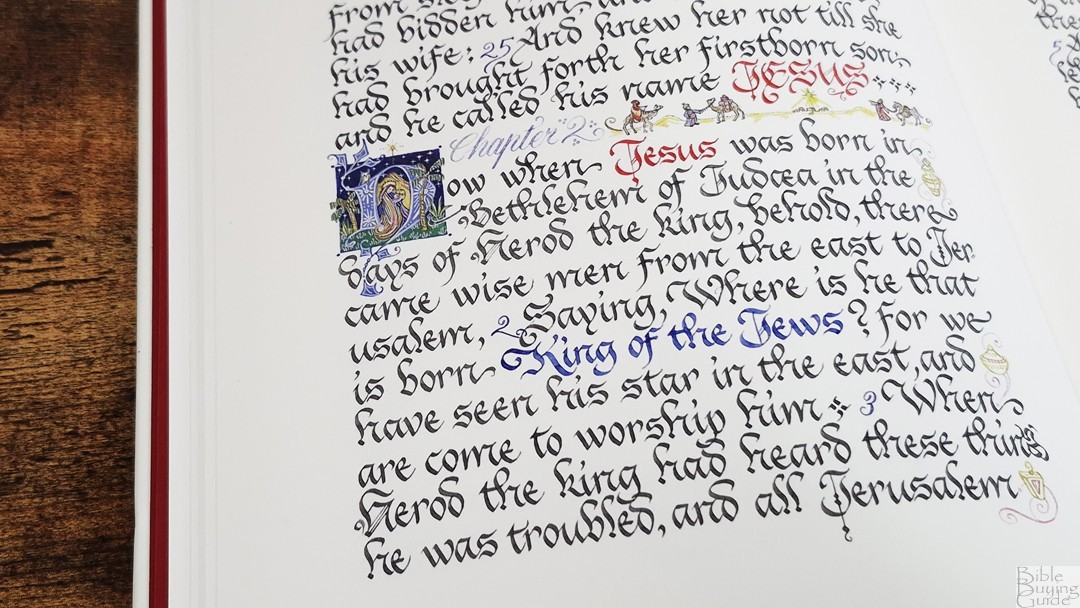 from
had bidden him, and
his wife: 25 And knew her not till she
had brought forth her firstborn son:
and he called his name JESUS
Chapter 2
Now when Jesus was born in
Bethlehem of Judæa in the
days of Herod the king, behold, there
came wise men from the east to Jer
usalem, 2 Saying, Where is he that
is born King of the Jews? for we
have seen his star in the east, and
are come to worship him 3 When
Herod the king had heard these things
he was troubled, and all Jerusalem
Bible
Buying
Guide